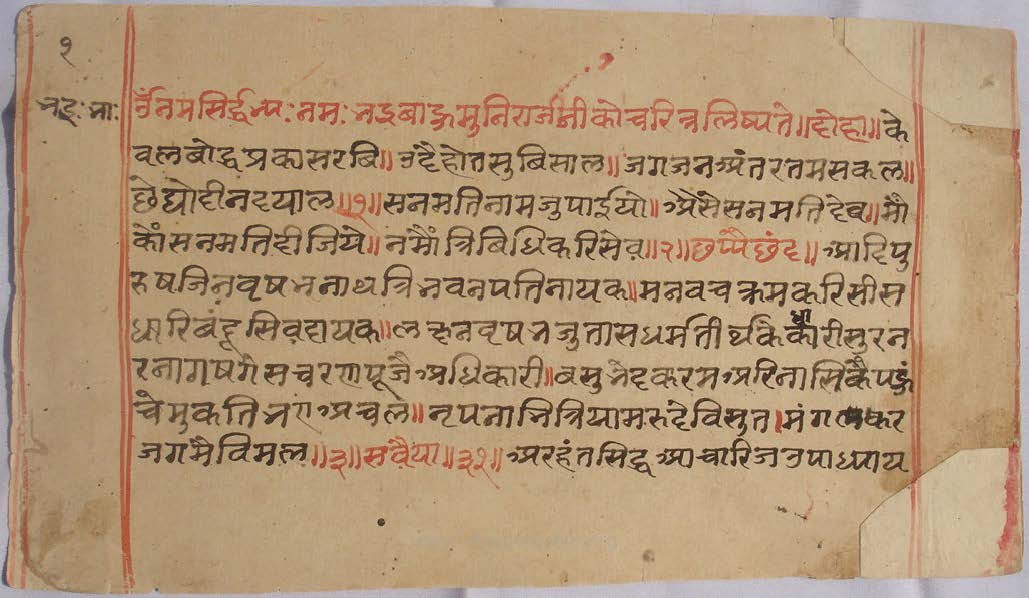 १
भद्रः भाः
ॐ नमसिर्द्धेभ्यः नमः भद्रबाहुमुनिराजजीकोचरित्रलिष्यते॥दोहा॥के
वलबोद्धप्रकासरबि॥उदैहोतसुबिसाल॥जगजनअंतरतमसकल॥
छेद्योदीनदयाल॥१॥सनमतिनामजुपाईयो॥अैसैसनमतिदेव॥मौं
कौंसनमतिदीजिये॥नमौंत्रिबिधिकरिसेव॥२॥छप्पैछंद॥आदिपु
रुषजिनवृषभनाथत्रिभवनपतिनायक॥मनवचक्रमकरिसीस
धारिबंदूसिवदायक॥लछनवृषभजुतासधर्मतीर्थकैधाकारीसुरन
रनागषगेसचरणपूजैअधिकारी॥वसुभेदकरमअरिनासिकैपहुं
चेमुकतिभएअचल॥नृपनाभित्रियामरुदेविसुत॥मंगलकर
जगमैविमल॥३॥सवैया॥३१॥अरहंतसिद्धआचारिजउपाध्याय